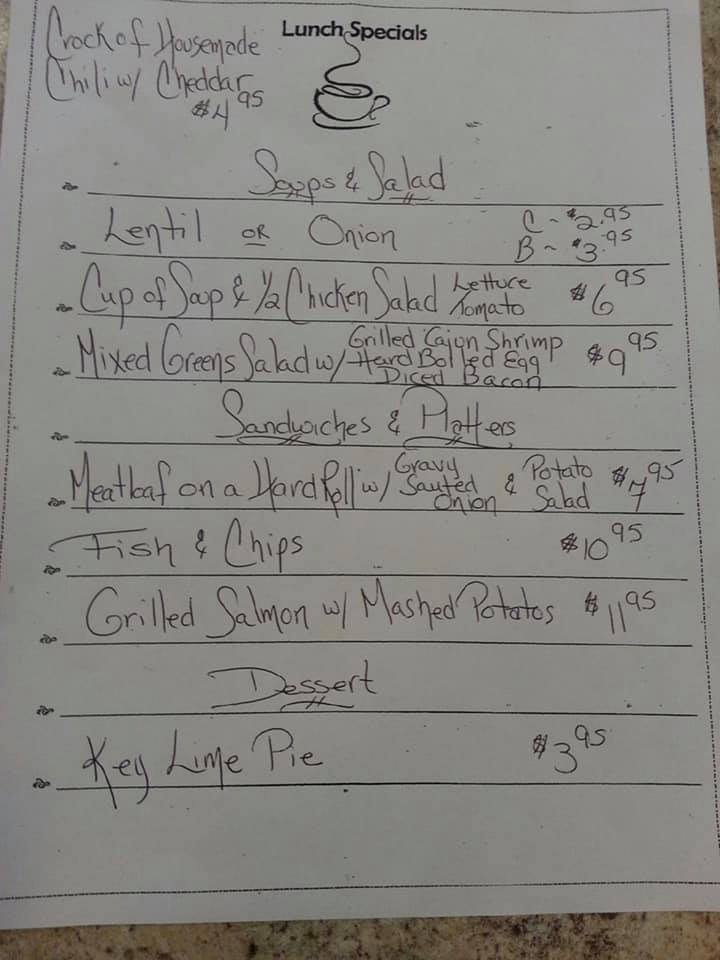 Crock of Housemade
Chili w/ Cheddar
$4.95
Lunch Specials
Soups & Salad
Lentil OR Onion C ~ $2.95
B ~ $3.95
Cup of Soup & 1/2 Chicken Salad Lettuce Tomato $6.95
Mixed Greens Salad w/ Grilled Cajun Shrimp Hard Boiled Egg Diced Bacon $9.95
Sandwiches & Platters
Meatloaf on a Hard Roll w/ Gravy Sauted Onion & Potato Salad $7.95
Fish & Chips $10.95
Grilled Salmon w/ Mashed Potatos $11.95
Dessert
Key Lime Pie $3.95